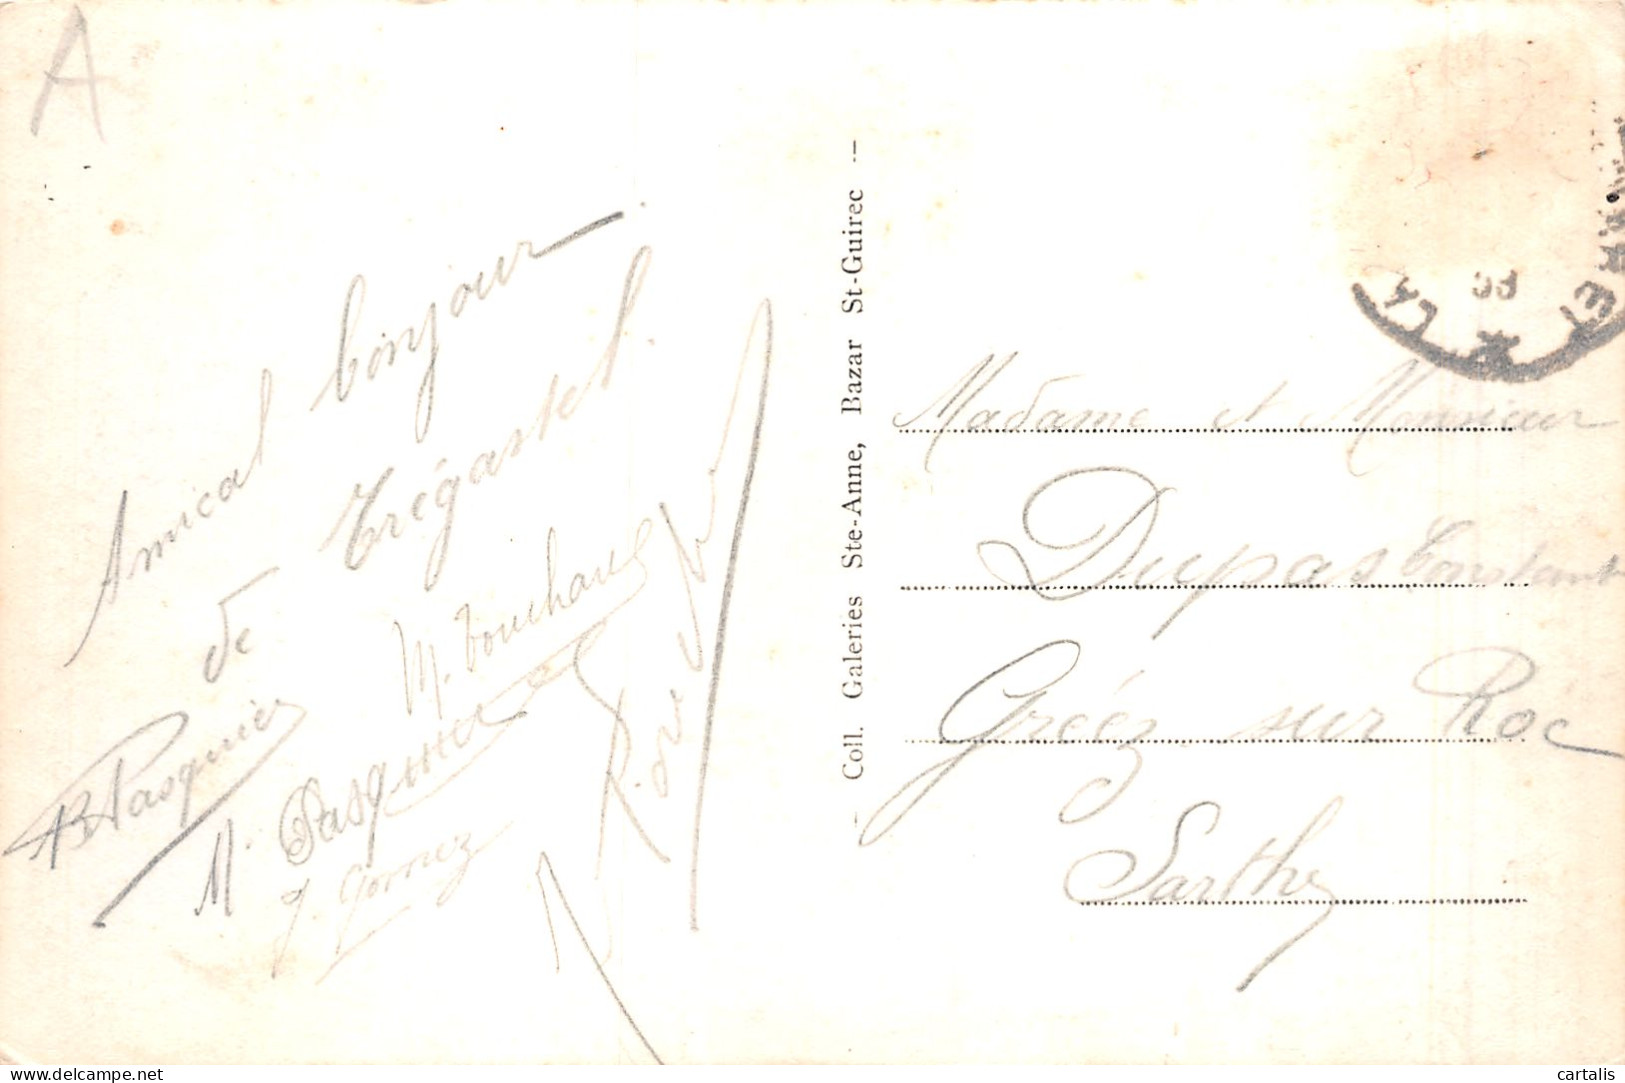 A
Amical bonjour
de Trégastel.
M. Bouchaud
AB Pasquier
M. Pasquier
J. Gomez
- Coll. Galeries Ste-Anne, Bazar St-Guirec -
Madame et Monsieur
Dupas Constant
Gréez sur Roc
Sarthe
www.delcampe.net
cartalis